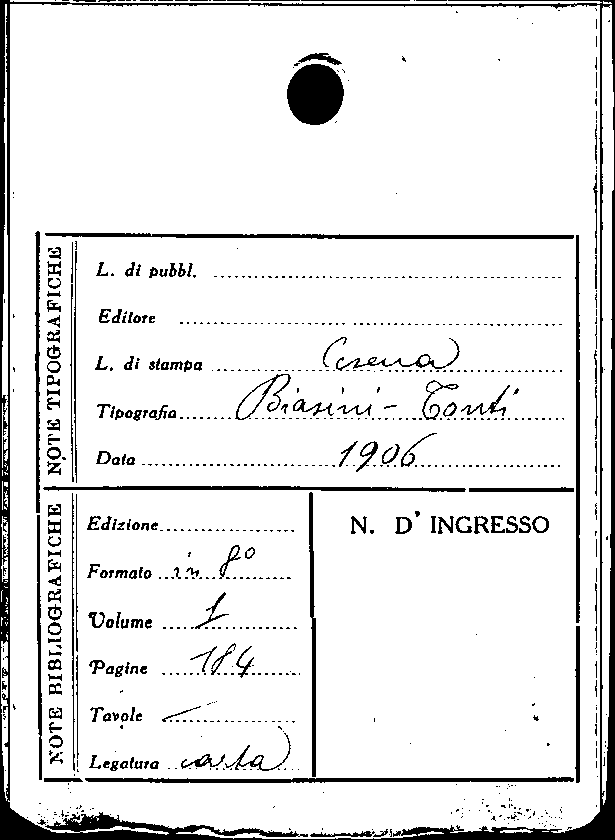 NOTE TIPOGRAFICHE
L. di pubbl.
Editore
L. di stampa Cesena
Tipografia Biasini - Tonti
Data 1906
NOTE BIBLIOGRAFICHE
Edizione
Formato in 8º
Volume 1
Pagine 184
Tavole —
Legatura carta
N. D' INGRESSO